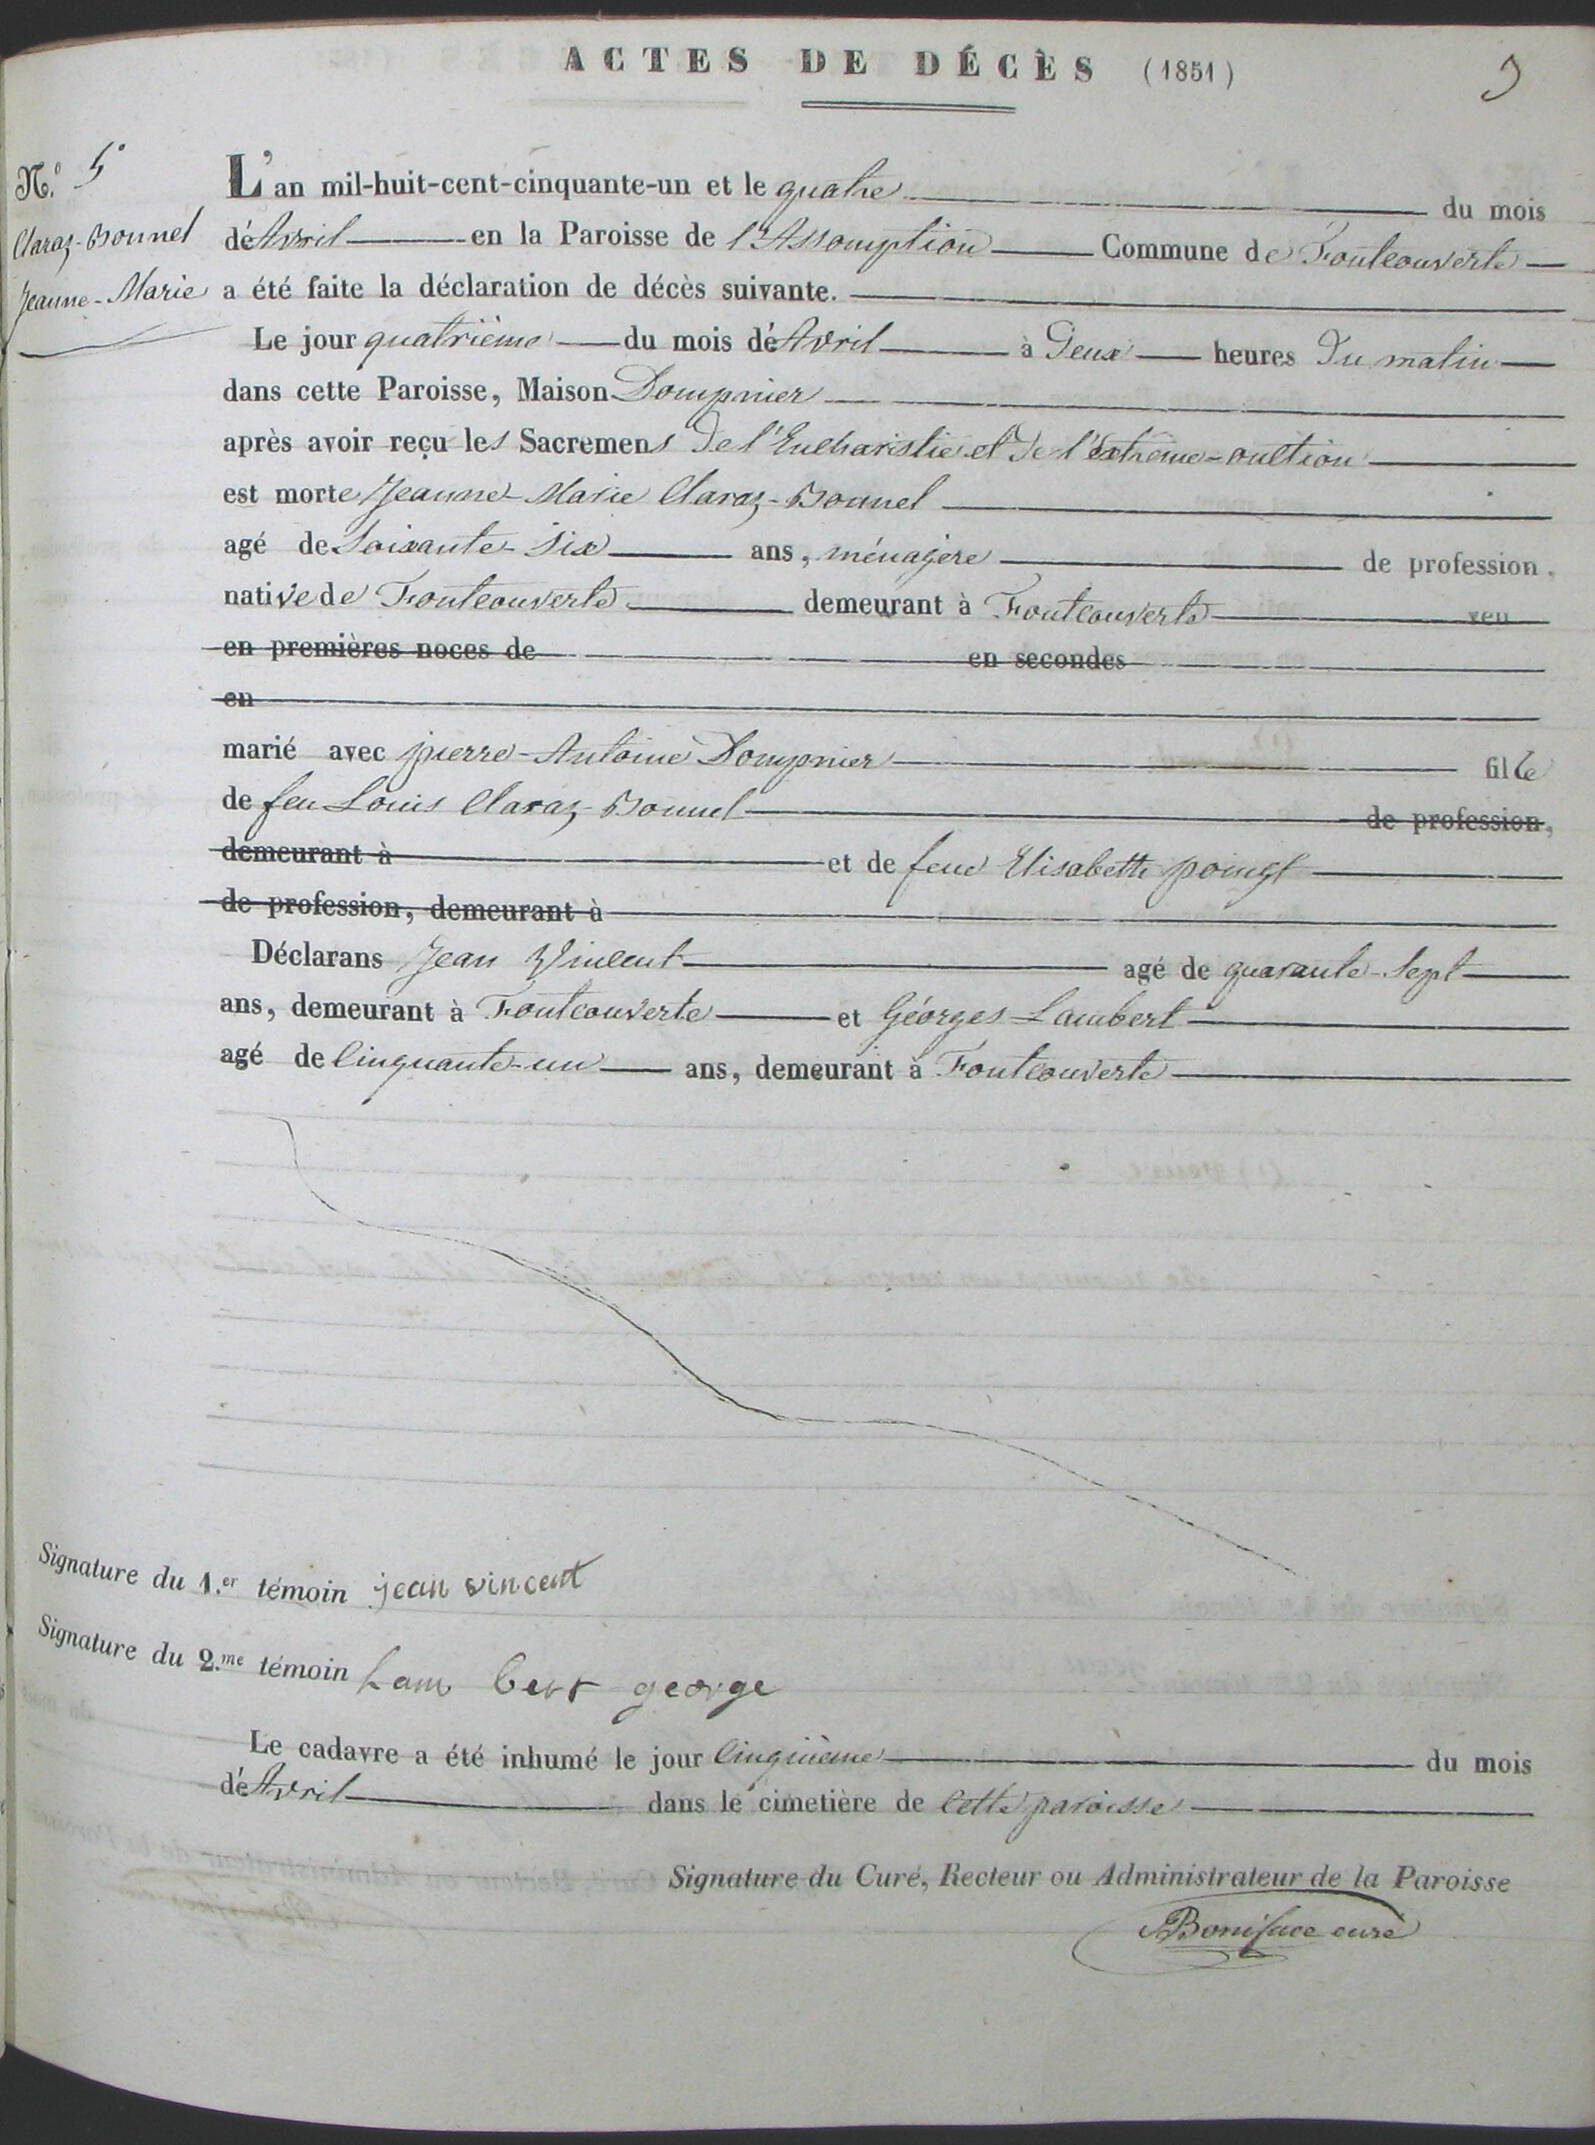 ACTES DE DÉCÈS (1851)
9
N.º 5º
Claraz-Bonnel
Jeanne-Marie
L'an mil-huit-cent-cinquante-un et le quatre du mois
d'Avril en la Paroisse de l'Assomption Commune de Fontcouverte
a été faite la déclaration de décès suivante.
Le jour quatrième du mois d'Avril à Deux heures Du matin
dans cette Paroisse, Maison Dompnier
après avoir reçu les Sacremens De l'Eucharistie et De l'Extrême-onction
est morte Jeanne-Marie Claraz-Bonnel
agé de Soixante-Six ans, ménagère de profession.
native de Fontcouverte demeurant à Fontcouverte veu
en premières noces de en secondes
en
marié avec pierre-Antoine Dompnier fille
de feu Louis Claraz-Bonnel de profession,
demeurant à et de feue Elisabette poingt
de profession, demeurant à
Déclarans Jean Vincent agé de quarante-Sept
ans, demeurant à Fontcouverte et Géorges Lambert
agé de Cinquante-un ans, demeurant à Fontcouverte
Signature du 1.er témoin jean vincent
Signature du 2.me témoin Lam bert george
Le cadavre a été inhumé le jour Cinquième du mois
d'Avril dans le cimetière de Cette paroisse
Signature du Curé, Recteur ou Administrateur de la Paroisse
Boniface curé